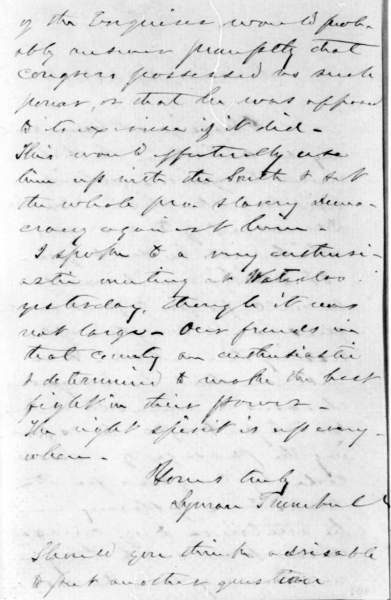 of the Enquirer, would prob-
ably answer promptly that
Congress possessed no such
power, or that he was opposed
to its exercise if it did –
This would effectually use
him up with the South & set
the whole pro-slavery Demo-
cracy against him –
I spoke to a very enthusi-
astic meeting at Waterloo
yesterday, though it was
not large – Our friends in
that county are enthusiastic
& determined to make the best
fight in their power –
The right spirit is up every-
where –
Yours truly
Lyman Trumbull
Should you think advisable
to put another question